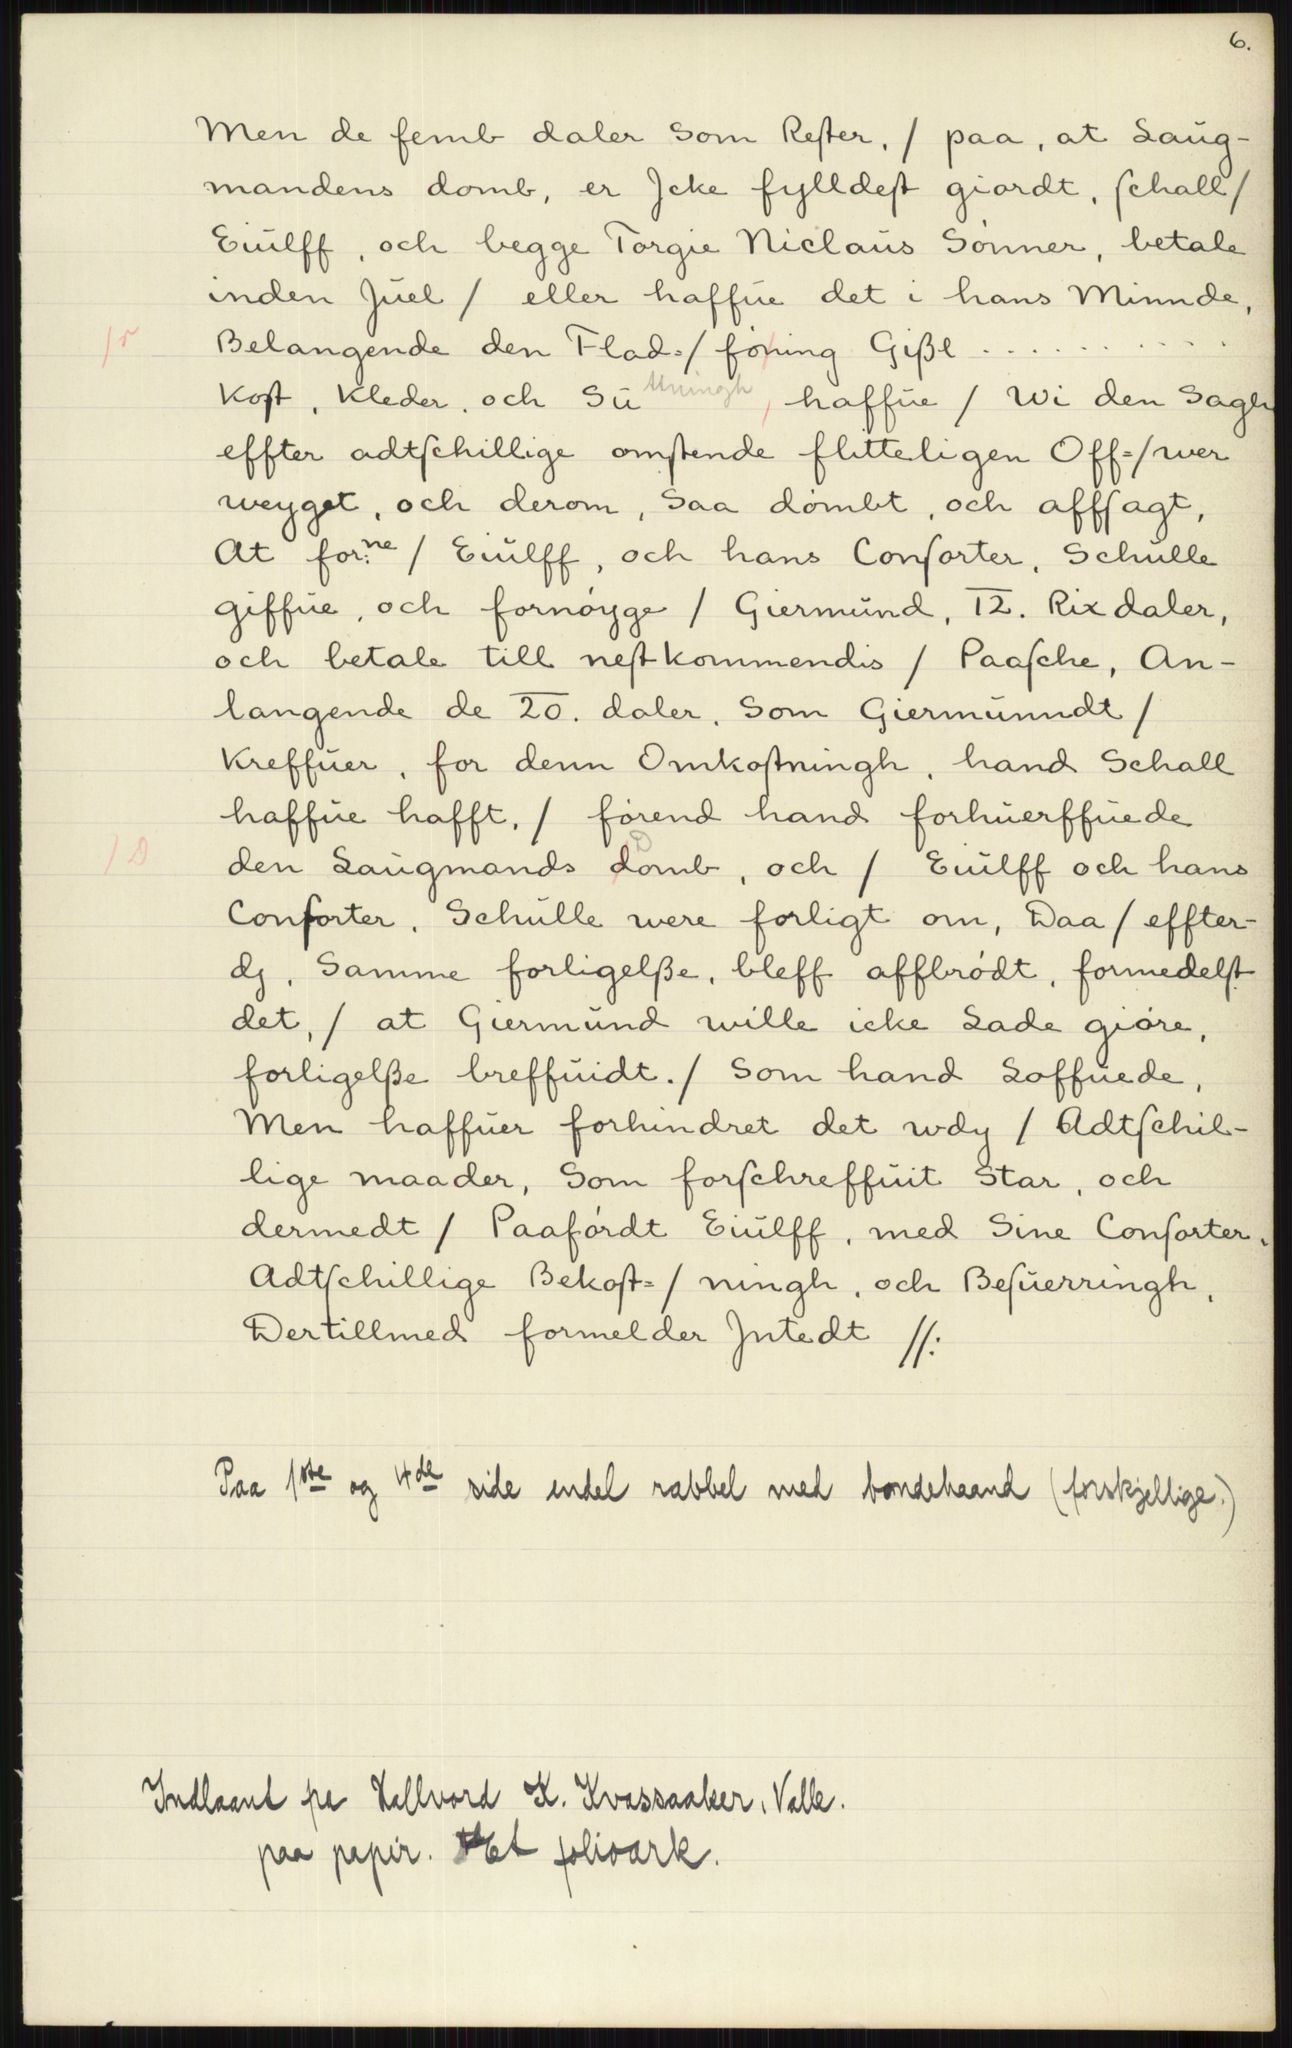 6.
Men de femb daler Som Rester, / paa, at Laug-
mandens domb, er Jcke fylldest giordt, schall /
Eiulff, och begge Torgie Niclaus Sønner, betale
inden Juel / eller haffue det i hans Minnde,
/r Belangende den Flad=/føning Gißl . . . . . . . . . .
Kost, Kleder, och Su ttningh, haffue / Wi den Sagh
effter adtschillige omstende flitteligen Off=/wer
weyget, och derom, Saa dømbt, och affsagt,
At for:ne / Eiulff, och hans Consorter, Schulle
giffue, och fornøyge / Giermund, 12. Rix daler,
och betale till nestkommendis / Paasche, An-
langende de 20. daler, Som Giermunndt /
Kreffuer, for denn Omkostningh, hand Schall
haffue hafft, / førend hand forhuerffuede
/D den Laugmands domb, och / Eiulff och hans
Consorter, Schulle were forligt om, Daa / effter-
dj, Samme forligelße, bleff affbrødt, formedelst
det, / at Giermund wille icke Lade giøre,
forligelße breffuidt. / Som hand Loffuede,
Men haffuer forhindret det wdy / Adtschil-
lige maader, Som forschreffuit Star, och
dermedt / Paaførdt Eiulff, med Sine Consorter,
Adtschillige Bekost=/ningh, och Besuerringh,
Dertillmed formelder Jntedt //:
Paa 1ste og 4de side endel rabbel med bondehaand (forskjellige.)
Indlaant fra Hallvard K. Kvassaaker, Valle.
paa papir. Et folioark.